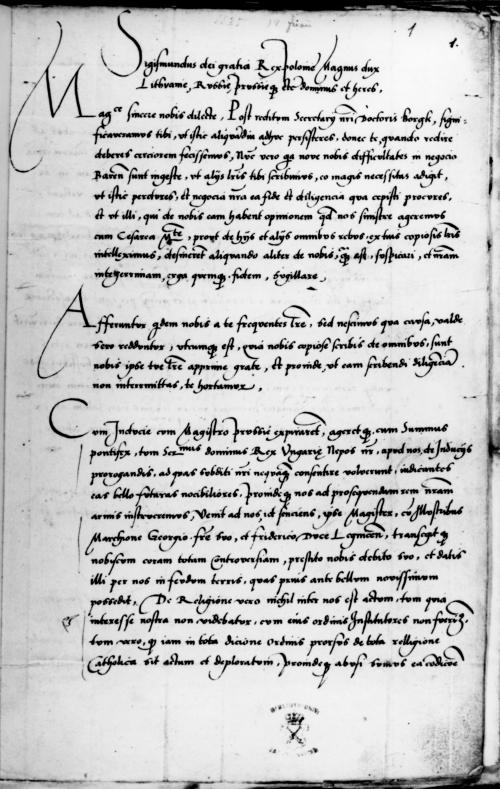 1.
Sigismundus dei gratia Rex polonie Magnus dux
Lithuanie, Russie prussieq etc dominus et heres,
Mag^ce syncere nobis dilecte, Post reditum Secretarij nri Doctoris Borgk, signi=
ficaveramus tibi, ut istic aliquandiu adhuc persisteres, donec te, quando redire
deberes cerciorem fecissemus, Nūc vero qa nove nobis difficultates in negocio
Baren sunt ingeste, ut alijs lris tibi scribimus, eo magis necessitas adigit,
ut istic perdures, et negocia nra ea fide et diligencia qua cepisti procures,
et ut illi, qui de nobis eam habent opinionem qd nos sinistre ageremus
cum Cesarea M^te, prout de hijs et alijs omnibus rebus, ex tuis copiosis lris
intelleximus, desinerent aliquando aliter de nobis, qm est, suspicari, et nram
integerrimam, erga quemq fidem, sugillare,
Afferuntur qdem nobis a te frequentes lre, sed nescimus qua causa, valde
sero redduntur, utcumq est, quia nobis copiose scribis de omnibus, sunt
nobis ipse tue lre apprime grate, et proinde, ut eam scribendi diligenciā
non intermittas, te hortamur,
Cum Inducie cum Magistro prussie expirarēt, ageretq, cum Summus
pontifex, tum Ser^mus dominus Rex Ungarie Nepos nr, apud nos, de Inducijs
prorogandis, ad quas subditi nri nequaqm consentire voluerunt, iudicantes
eas bello futuras nocibiliores, proindeq nos ad prosequendum rem nram
armis instrueremus, Venit ad nos id senciens, ipse Magister, cū Illustribus
Marchione Georgio fre suo, et friderico, Duce Legnicen, transegitq
nobiscum coram totam controversiam, prestito nobis debito suo, et datis
illi per nos in feodum terris, quas prius ante bellum novissimum
possedit, De Religione vero nichil inter nos est actum, tum quia
interesse nostra non videbatur, cum eius ordinis Institutores non fuerim,
tum vero, q iam in tota dicione ordinis prorsus de tota religione
Catholica sit actum et deploratum, proindeq abusi sumus ea condicoē